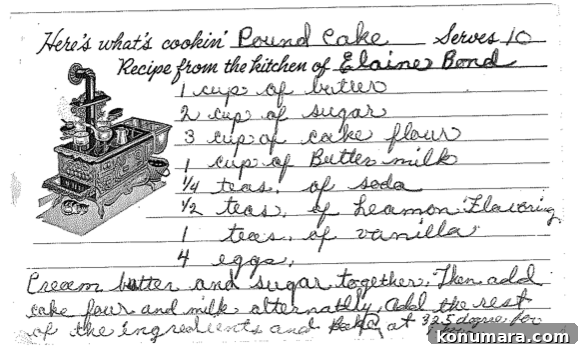 Here's what's cookin' Pound Cake Serves 10
Recipe from the kitchen of Elaine Bond
1 cup of butter
2 cup of sugar
3 cup of cake flour
1 cup of Butter milk
1/4 teas. of soda
1/2 teas. of Leamon Flavoring
1 teas. of vanilla
4 eggs.
Cream butter and sugar together. Then add
cake flour and milk alternatlly, add the rest
of the ingredients and Bake at 325 degree for
konumara.com